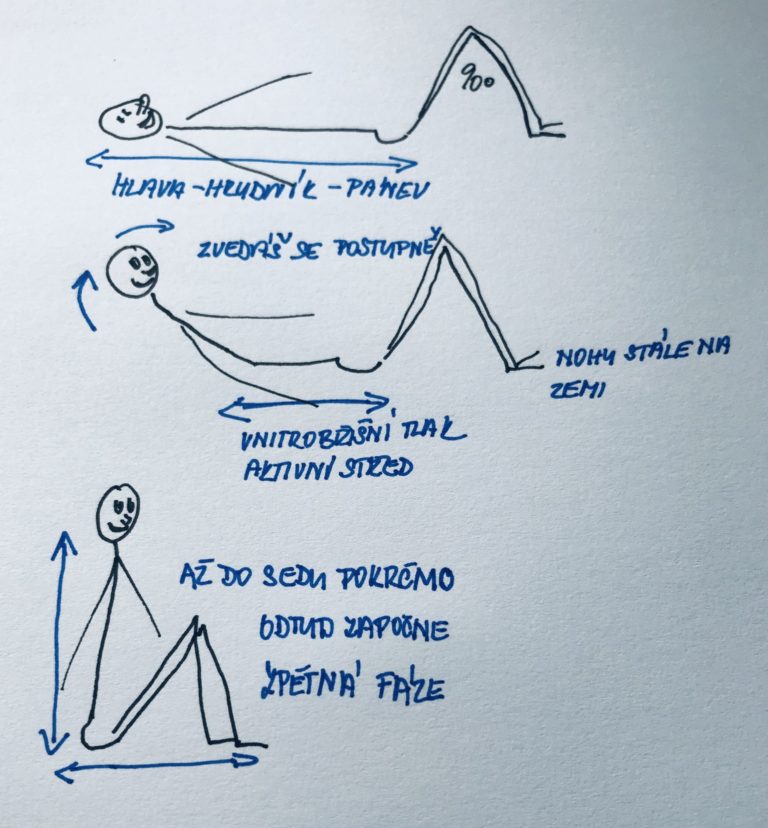 90°
HLAVA-HRUDNÍK-PÁNEV
ZVEDÁŠ SE POSTUPNĚ
NOHY STÁLE NA
ZEMI
VNITROBŘIŠNÍ TLAK
AKTIVNÍ STŘED
AŽ DO SEDU POKRČMO
ODTUD ZAPOČNE
ZPĚTNÁ FÁZE